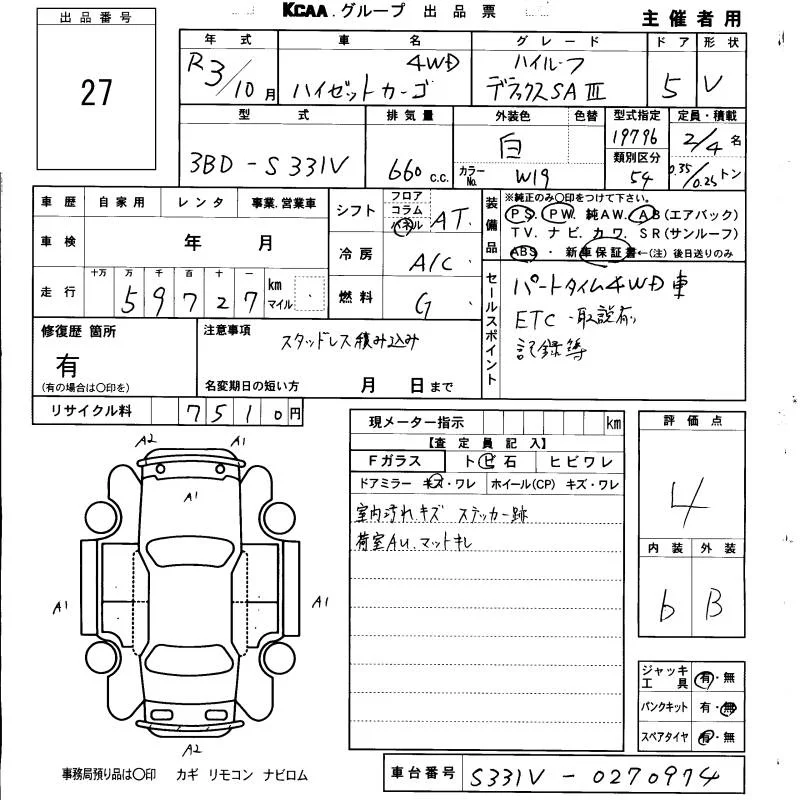 KCAA.グループ 出品票
主催者用
出品番号
27
年式 車名 グレード ドア 形状
R3/10月 4WD ハイゼットカーゴ ハイルーフ デラックスSAⅢ 5 V
型式 排気量 外装色 色替 型式指定 定員・積載
3BD-S331V 660 c.c. 白 カラーNo. W19 19796 2/4名
類別区分
54 0.35/0.25トン
車歴 自家用 レンタ 事業.営業車
シフト フロア コラム パネル AT
車検 年 月
冷房 A/C
走行 十万 万 千 百 十 一
59727 km マイル
燃料 G
装備品 ※純正のみ○印をつけて下さい。
PS. PW. 純AW. AB(エアバック)
TV. ナビ. カワ. SR(サンルーフ)
ABS・ 新車保証書←(注) 後日送りのみ
セールスポイント
パートタイム4WD車
ETC・取説有
記録等
修復歴 箇所
有
(有の場合は○印を)
注意事項
スタッドレス積み込み
名変期日の短い方 月 日まで
リサイクル料 7510円
現メーター指示 km
【査定員記入】
Fガラス トビ石 ヒビワレ
ドアミラー キズ・ワレ ホイール(CP) キズ・ワレ
室内汚れ、キズ ステッカー跡
荷室AU、マットキレ
評価点
4
内装 外装
b B
A2 A1
A1
A1 A1
A2
ジャッキ工具 有・無
パンクキット 有・無
スペアタイヤ 有・無
事務局預り品は○印 カギ リモコン ナビロム
車台番号 S331V-0270974